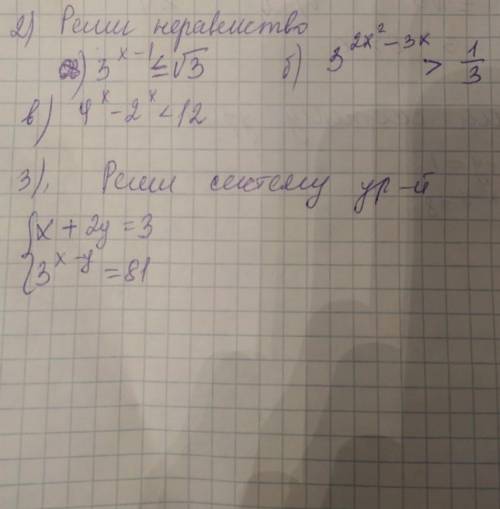 2) Реши неравенство
а) 3^{x-1} ≤ √3 б) 3^{2x²-3x} > 1/3
в) 4^x - 2^x < 12
3). Реши систему ур-й
{x + 2y = 3
3^{x-y} = 81